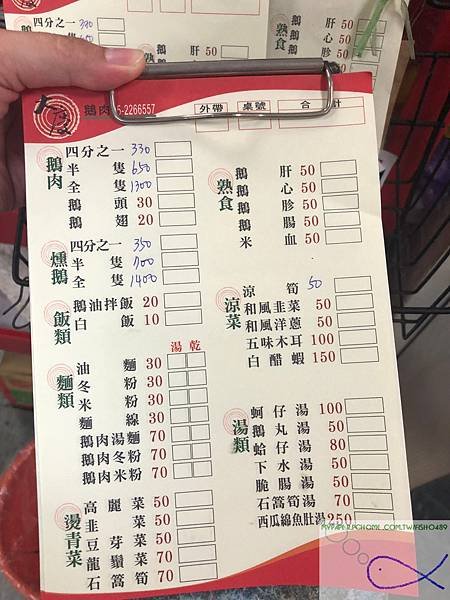 四分之一 330
鵝 肝 50
鵝 心 50
鵝 胗 50
熟食
大陸
鵝肉
-2266557
外帶 桌號 合計
鵝肉
四分之一 330
半隻 650
全隻 1300
鵝頭 30
鵝翅 20
燻鵝
四分之一 350
半隻 700
全隻 1400
飯類
鵝油拌飯 20
白飯 10
湯 乾
麵類
油麵 30
冬粉 30
米粉 30
麵線 30
鵝肉湯麵 70
鵝肉冬粉 70
鵝肉米粉 70
燙青菜
高麗菜 50
韭菜 50
豆芽菜 50
龍鬚菜 50
石篙筍 70
熟食
鵝肝 50
鵝心 50
鵝胗 50
鵝腸 50
米血 50
涼菜
涼筍 50
和風韭菜 50
和風洋蔥 50
五味木耳 100
白醋蝦 150
湯類
蚵仔湯 100
鵝丸湯 50
蛤仔湯 80
下水湯 50
脆腸湯 50
石篙筍湯 70
西瓜綿魚肚湯 250
MYPAPER.PCHOME.COM.TW/FISH0489